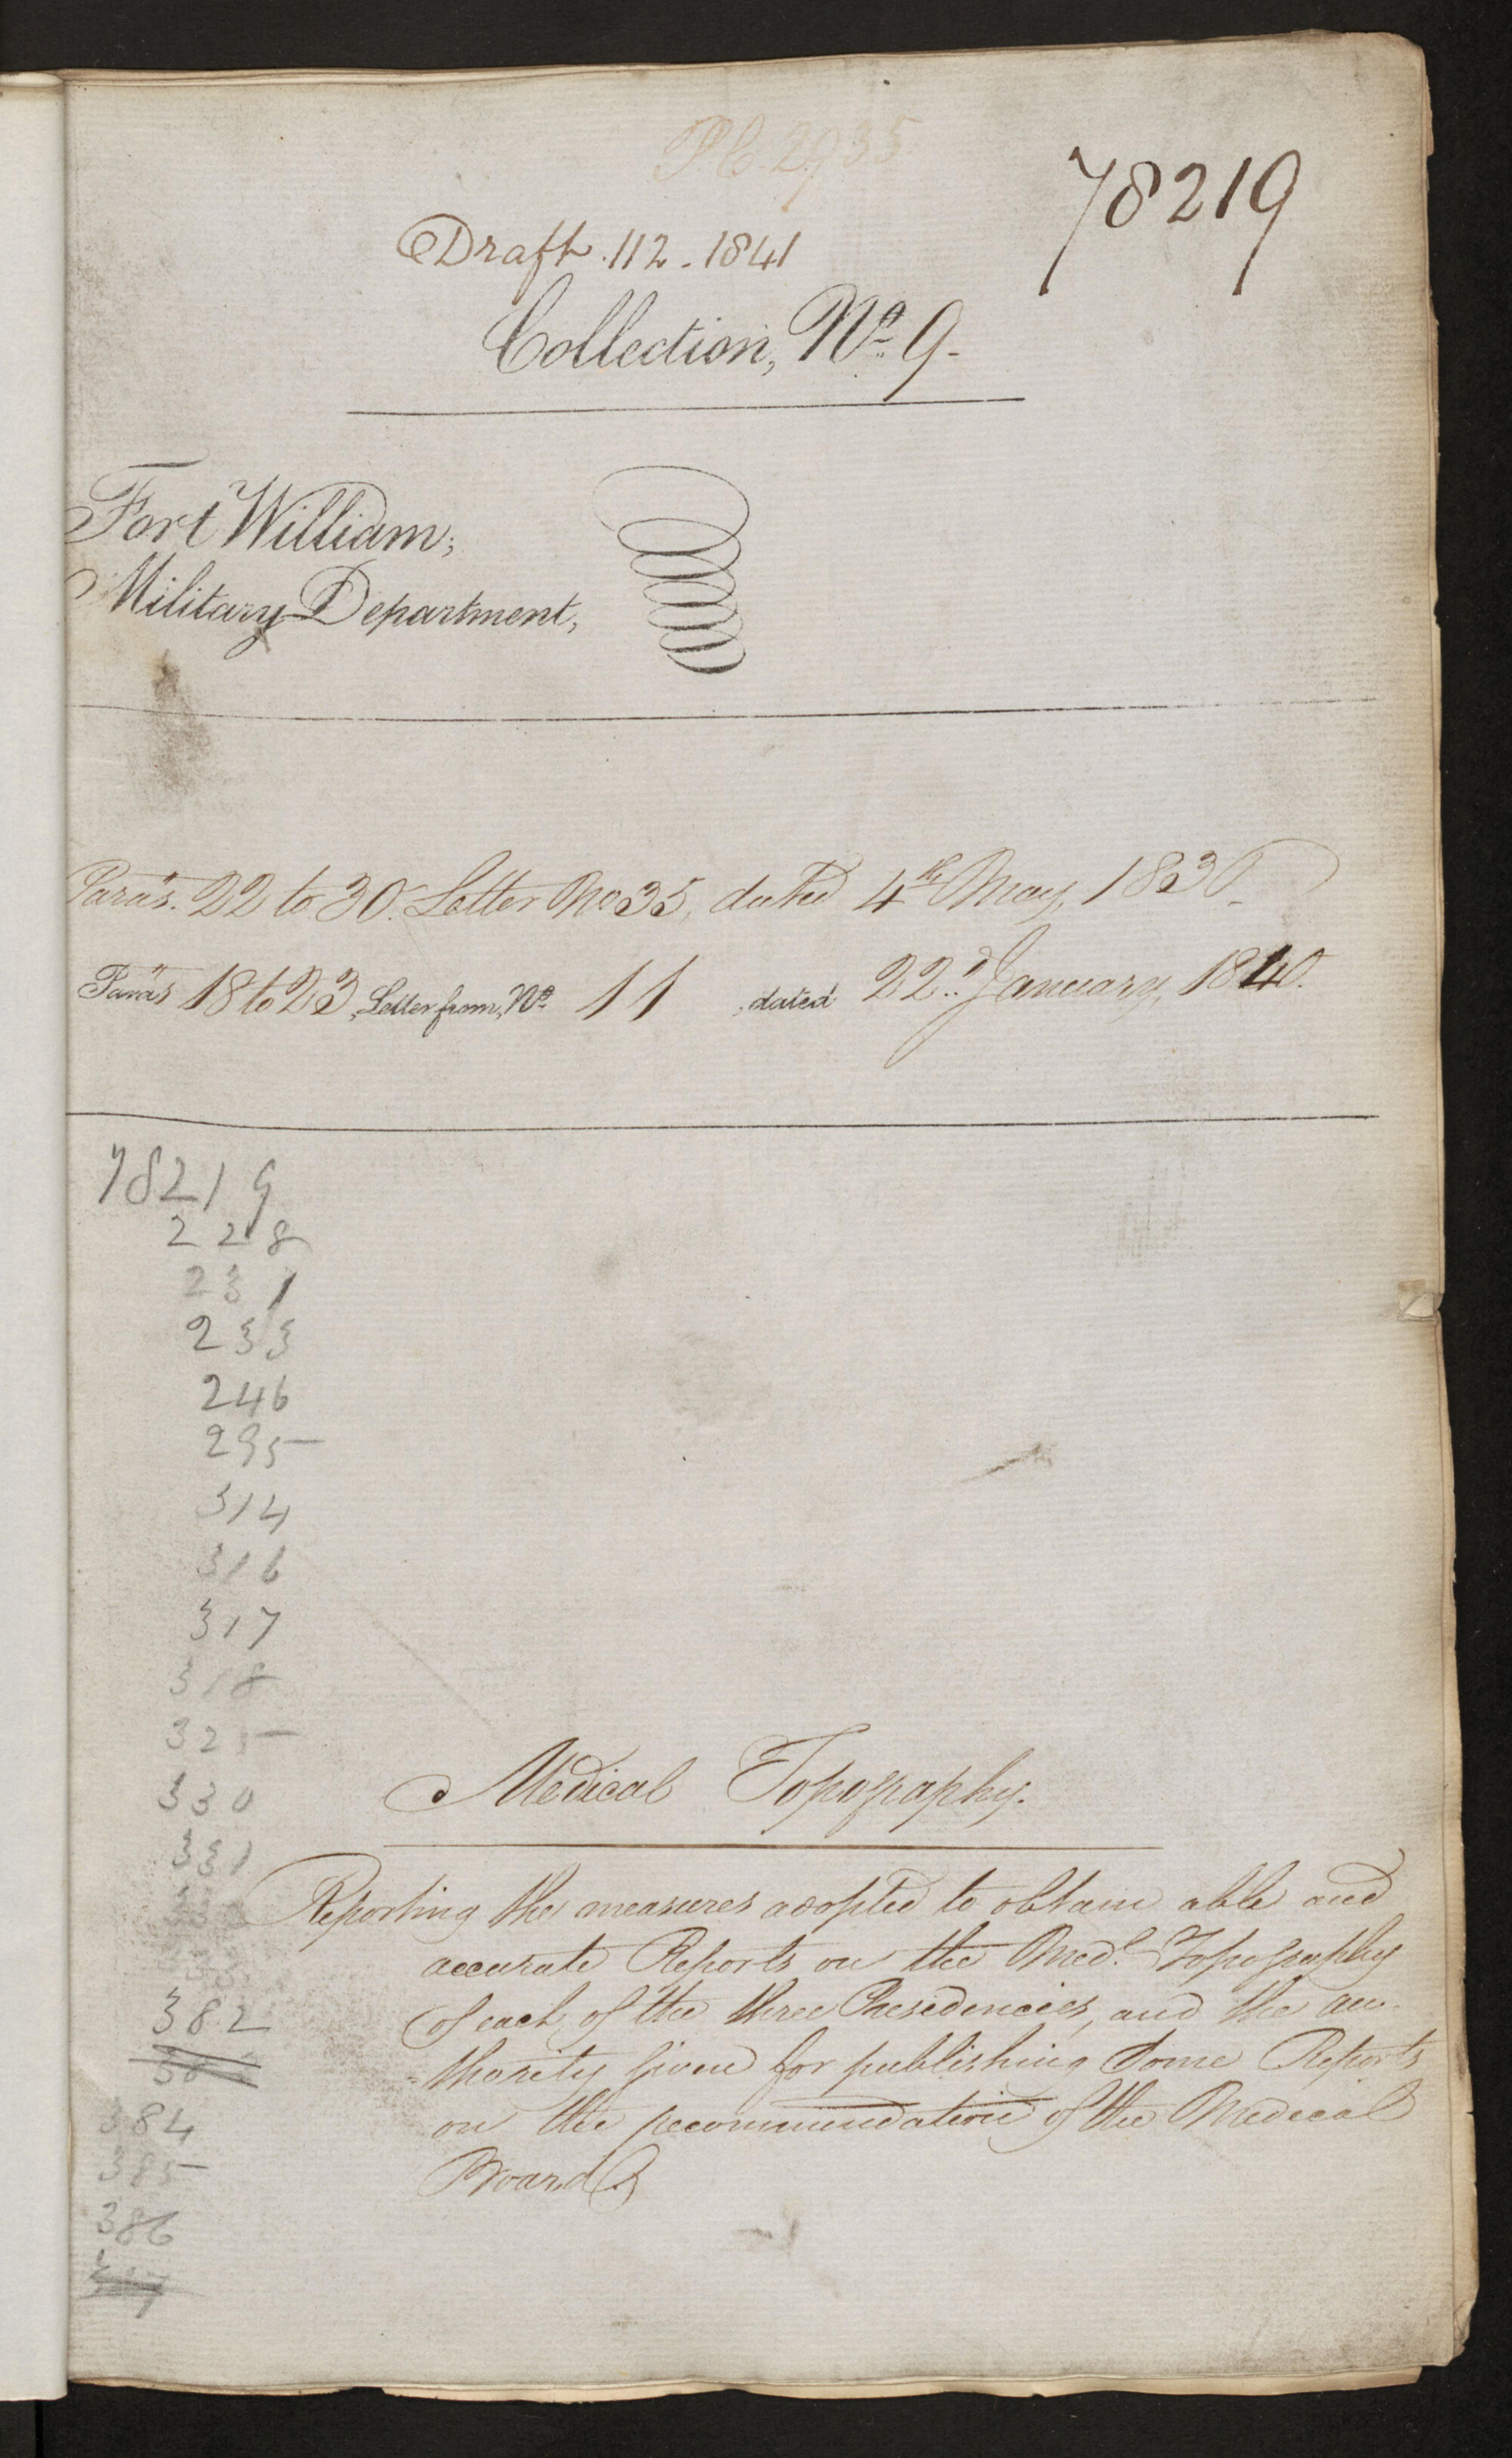 P.C. 2935
78219
Draft. 112. 1841
Collection, No. 9-
Fort William;
Military Department,
Paras. 22 to 30. Letter No 35, dated 4th May, 1830_
Paras 18 to 23, Letter from, No. 11, dated 22d. January, 1840.
78219
228
231
233
246
295
314
316
317
318
325
330
331
382
384
385
386
Medical Topography.
Reporting the measures adopted to obtain able and
accurate Reports on the Medl. Topography
of each of the three Presidencies, and the au-
-thority given for publishing some Reports
on the recommendation of the Medical
Board.